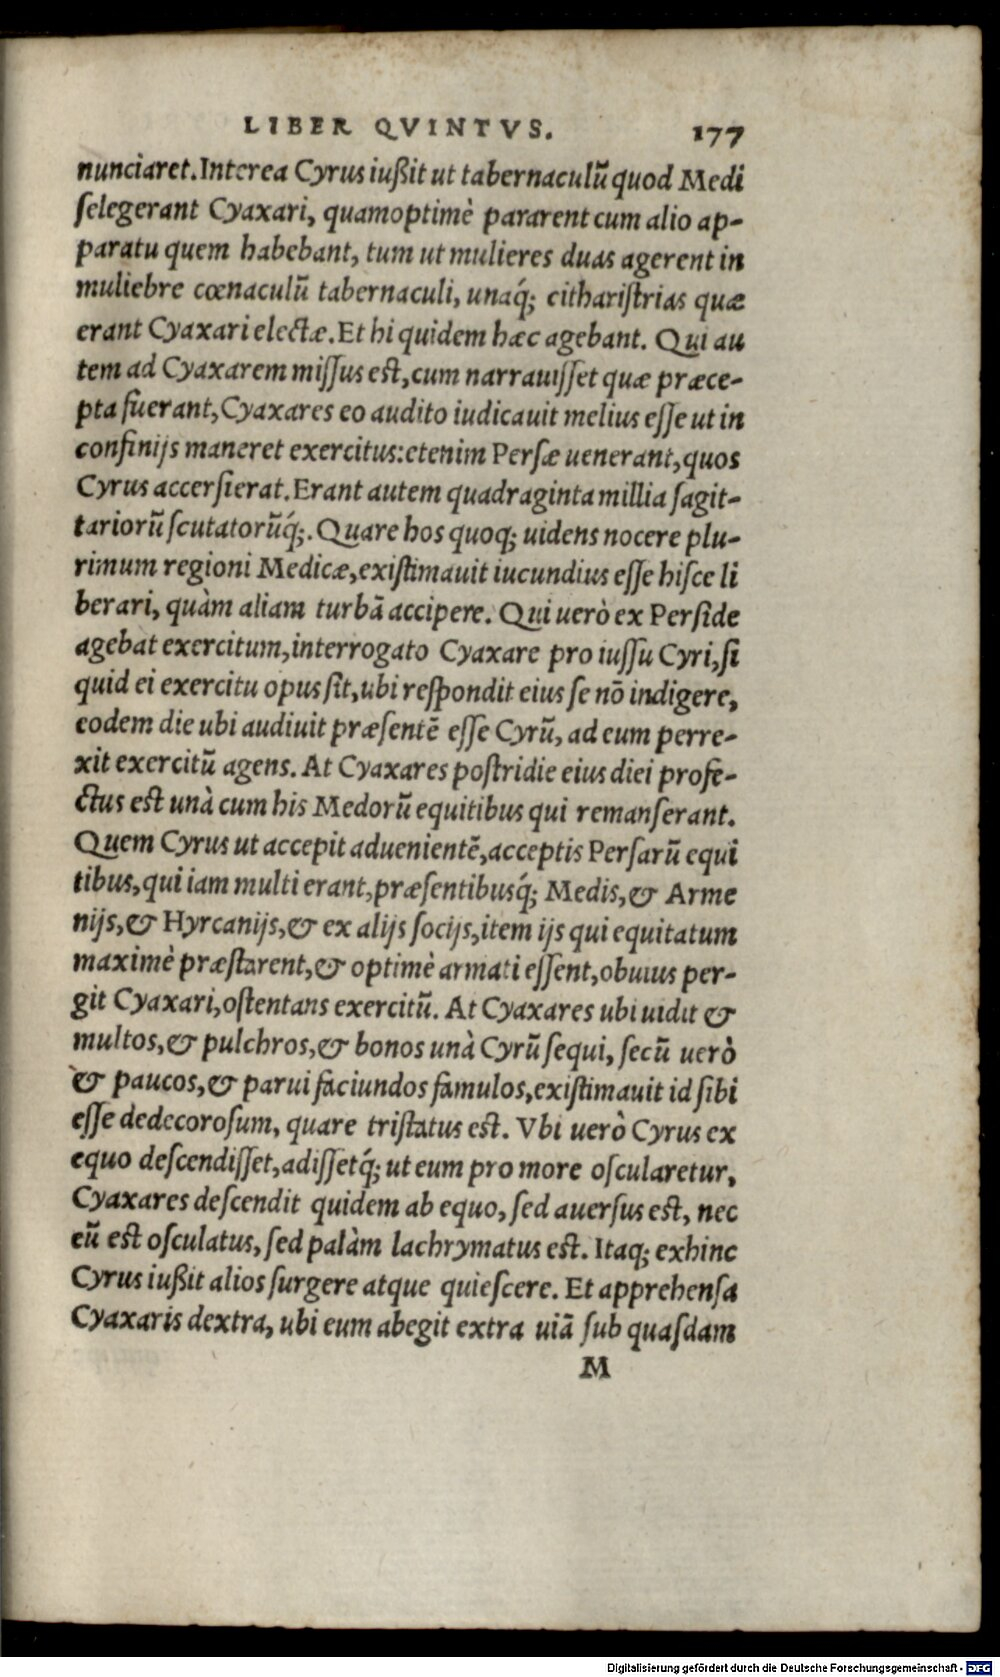 LIBER QVINTVS. 177
nunciaret. Interea Cyrus iußit ut tabernaculũ quod Medi
ſelegerant Cyaxari, quamoptimè pararent cum alio ap-
paratu quem habebant, tum ut mulieres duas agerent in
muliebre cœnaculũ tabernaculi, unaq́; cithariſtrias quæ
erant Cyaxari electæ. Et hi quidem hæc agebant. Qui au
tem ad Cyaxarem miſſus est, cum narrauiſſet quæ præce-
pta fuerant, Cyaxares eo audito iudicauit melius eſſe ut in
confinijs maneret exercitus: etenim Perſæ uenerant, quos
Cyrus accerſierat. Erant autem quadraginta millia ſagit-
tariorũ ſcutatorũq́;. Quare hos quoq; uidens nocere plu-
rimum regioni Medicæ, exiſtimauit iucundius eſſe hiſce li
berari, quàm aliam turbã accipere. Qui uerò ex Perſide
agebat exercitum, interrogato Cyaxare pro iuſſu Cyri, ſi
quid ei exercitu opus ſit, ubi reſpondit eius ſe nõ indigere,
eodem die ubi audiuit præſentẽ eſſe Cyrũ, ad eum perre-
xit exercitũ agens. At Cyaxares poſtridie eius diei profe-
ctus est unà cum his Medorũ equitibus qui remanſerant.
Quem Cyrus ut accepit aduenientẽ, acceptis Perſarũ equi
tibus, qui iam multi erant, præſentibusq́; Medis, & Arme
nijs, & Hyrcanijs, & ex alijs ſocijs, item ijs qui equitatum
maximè præſtarent, & optimè armati eſſent, obuius per-
git Cyaxari, oſtentans exercitũ. At Cyaxares ubi uidit &
multos, & pulchros, & bonos unà Cyrũ ſequi, ſecũ uerò
& paucos, & parui faciundos famulos, exiſtimauit id ſibi
eſſe dedecoroſum, quare triſtatus est. Vbi uerò Cyrus ex
equo deſcendiſſet, adiſſetq́; ut eum pro more oſcularetur,
Cyaxares deſcendit quidem ab equo, ſed auerſus est, nec
eũ est oſculatus, ſed palàm lachrymatus est. Itaq; exhinc
Cyrus iußit alios ſurgere atque quieſcere. Et apprehenſa
Cyaxaris dextra, ubi eum abegit extra uiã ſub quaſdam
M
Digitalisierung gefördert durch die Deutsche Forschungsgemeinschaft - DFG